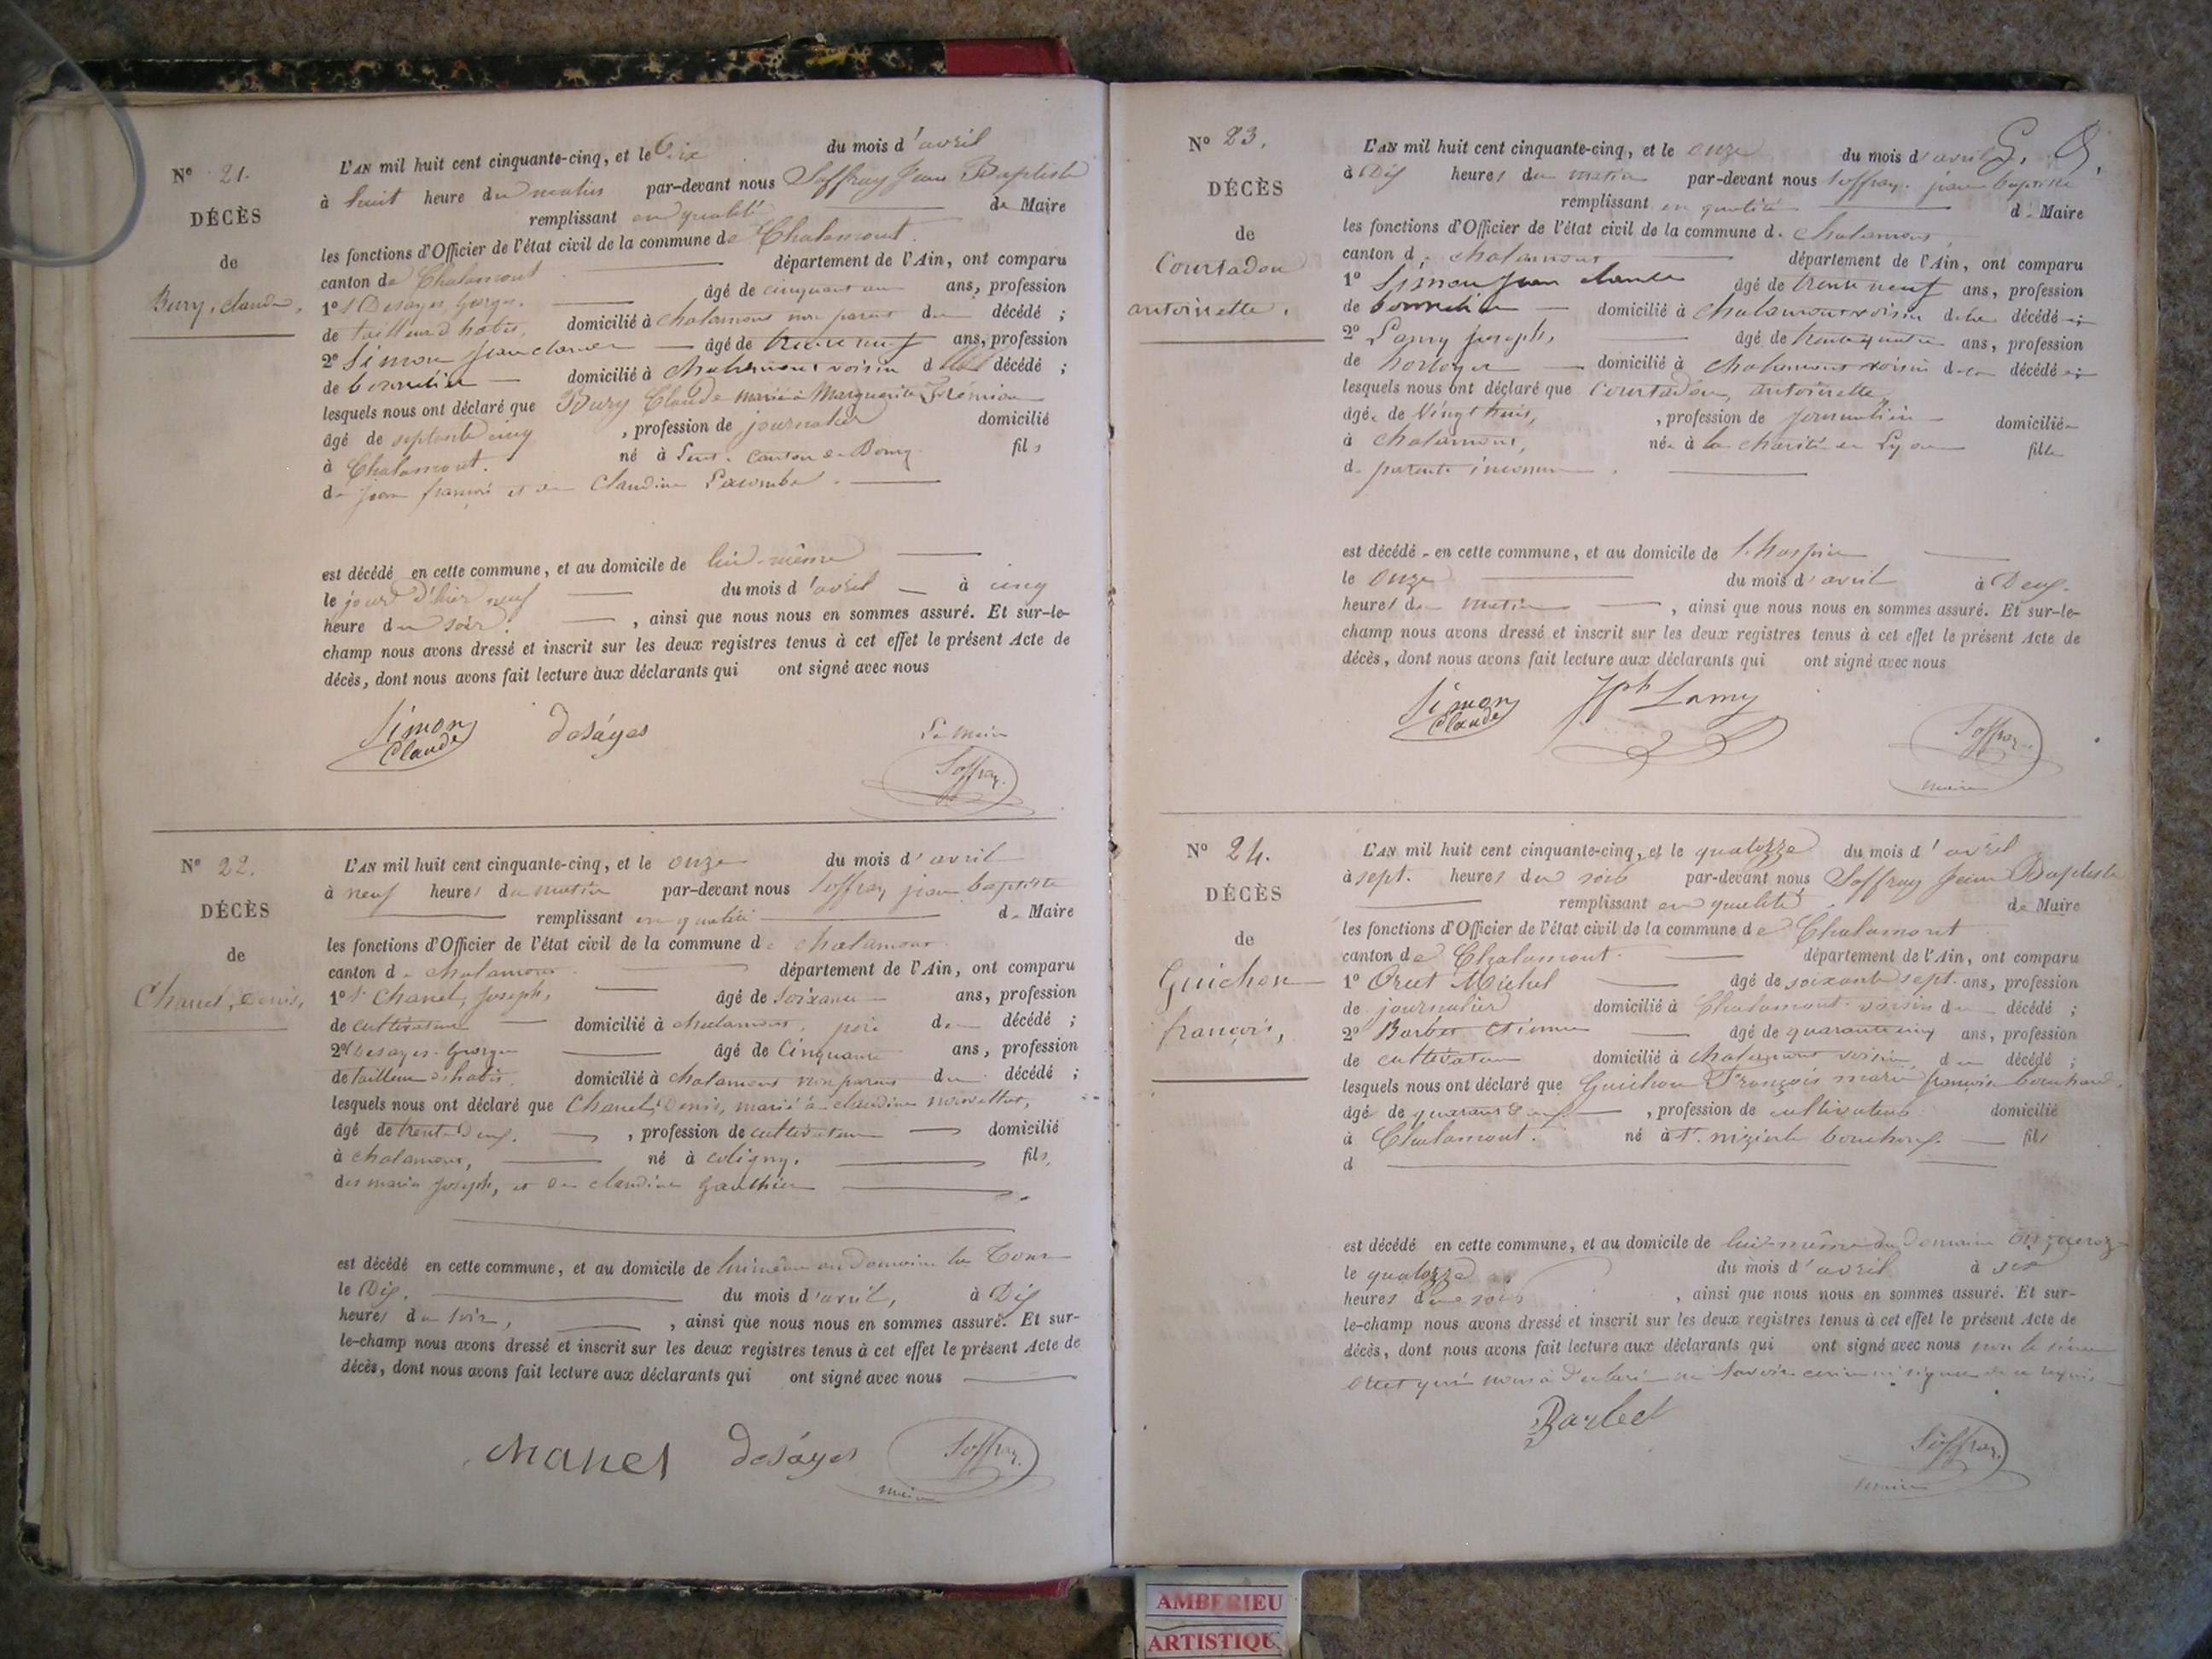 N° 21.
DÉCÈS
de
Bury, claude,
L'AN mil huit cent cinquante-cinq, et le Dix du mois d'avril
à huit heure du matin par-devant nous Soffray Jean Baptiste
remplissant en qualité de Maire
les fonctions d'Officier de l'état civil de la commune de Chalamont.
canton de Chalamont département de l'Ain, ont comparu
1° Desayes, Georges. âgé de cinquante ans, profession
de tailleur d'habits, domicilié à chalamont non parent du décédé ;
2° Simon Jean claude âgé de trente neuf ans, profession
de bourrelier domicilié à chalamont voisin du décédé ;
lesquels nous ont déclaré que Bury Claude marié à Marguerite
âgé de septante cinq , profession de journalier domicilié
à Chalamont. né à canton de Bourg fils
de jean françois et de Claudine Lacombe.
est décédé en cette commune, et au domicile de lui-même
le jour d'hier neuf du mois d'avril à cinq
heure du soir. , ainsi que nous nous en sommes assuré. Et sur-le-
champ nous avons dressé et inscrit sur les deux registres tenus à cet effet le présent Acte de
décès, dont nous avons fait lecture aux déclarants qui ont signé avec nous
Simon Claude desáyes Le Maire
Soffray.
N° 22.
DÉCÈS
de
Chanel, Denis,
L'AN mil huit cent cinquante-cinq, et le onze du mois d'avril
à neuf heures du matin par-devant nous Soffray jean baptiste
remplissant en qualité de Maire
les fonctions d'Officier de l'état civil de la commune de chalamont
canton de chalamont département de l'Ain, ont comparu
1° Chanel, Joseph, âgé de soixante ans, profession
de cultivateur domicilié à chalamont, père du décédé ;
2° Desayes George âgé de Cinquante ans, profession
de tailleur d'habits, domicilié à chalamont non parent du décédé ;
lesquels nous ont déclaré que Chanel, Denis, marié à claudine
âgé de trente Deux. , profession de cultivateur domicilié
à chalamont, né à coligny, fils,
de marie Joseph, et de claudine Gauthier
est décédé en cette commune, et au domicile de lui même au Domaine la Tour
le Dix. du mois d'avril, à Dix
heures du soir, , ainsi que nous nous en sommes assuré. Et sur-
le-champ nous avons dressé et inscrit sur les deux registres tenus à cet effet le présent Acte de
décès, dont nous avons fait lecture aux déclarants qui ont signé avec nous
chanel desáyes Soffray.
maire
N° 23.
DÉCÈS
de
Courtadon
antoinette.
L'AN mil huit cent cinquante-cinq, et le onze du mois d'avril
à Dix heures du matin par-devant nous Soffray jean baptiste
remplissant en qualité de Maire
les fonctions d'Officier de l'état civil de la commune de chalamont,
canton de chalamont département de l'Ain, ont comparu
1° Simon Jean claude âgé de trente neuf ans, profession
de bourrelier domicilié à chalamont voisin de la décédée
2° Lamy joseph, âgé de trente quatre ans, profession
de horloger domicilié à chalamont voisin de la décédée
lesquels nous ont déclaré que Courtadon, antoinette,
âgée de Vingt huit, , profession de journalière domiciliée
à chalamont, née à la charité de Lyon fille
de parents inconnus.
est décédée en cette commune, et au domicile de l'hospice
le onze du mois d'avril à Deux.
heures du matin , ainsi que nous nous en sommes assuré. Et sur-le-
champ nous avons dressé et inscrit sur les deux registres tenus à cet effet le présent Acte de
décès, dont nous avons fait lecture aux déclarants qui ont signé avec nous
Simon Claude Jph Lamy Soffray
maire
N° 24.
DÉCÈS
de
Guichon
françois,
L'AN mil huit cent cinquante-cinq, et le quatorze du mois d'avril
à sept. heures du soir par-devant nous Soffray Jean Baptiste
remplissant en qualité de Maire
les fonctions d'Officier de l'état civil de la commune de Chalamont
canton de Chalamont. département de l'Ain, ont comparu
1° Michel âgé de soixante sept. ans, profession
de journalier domicilié à Chalamont voisin du décédé ;
2° Barbet Etienne âgé de quarante cinq ans, profession
de cultivateur domicilié à chalamont voisin du décédé ;
lesquels nous ont déclaré que Guichon François marié françoise bouchard,
âgé de quarante , profession de cultivateur domicilié
à Chalamont. né à St. nizier le bouchoux. fils
d
est décédé en cette commune, et au domicile de lui-même du Domaine
le quatorze du mois d'avril à six
heures du soir , ainsi que nous nous en sommes assuré. Et sur-
le-champ nous avons dressé et inscrit sur les deux registres tenus à cet effet le présent Acte de
décès, dont nous avons fait lecture aux déclarants qui ont signé avec nous non le sieur
qui nous a Déclaré ne Savoir écrire ni signer de ce requis
Barbet Soffray.
maire
AMBERIEU
ARTISTIQU